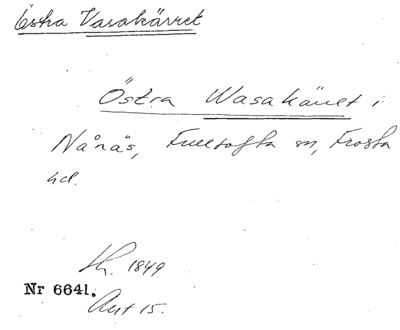 Östra Vasakärret
Östra Wasakärret i
Nånås, Fulltofta sn, Frosta
hd.
Lh. 1849
Nr 6641.
Akt 15.